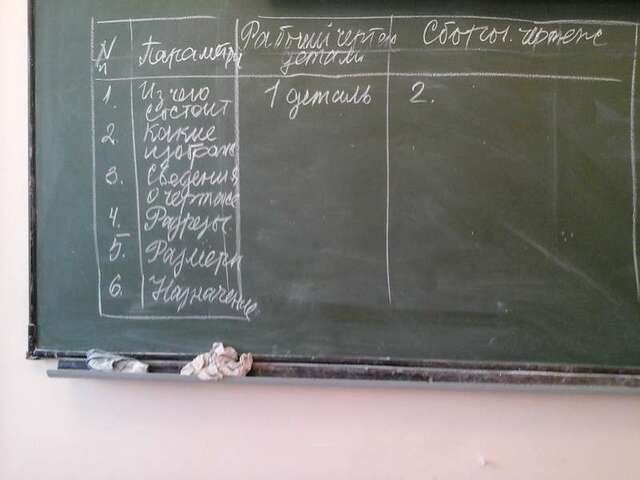 N
п
Параметры
Рабочий чертеж
детали
Сбороч. чертеж
1.
Из чего
состоит
1 деталь
2.
2.
Какие
изображ
3.
Сведения
о чертеже
4.
Разрезы
5.
Размеры
6.
Назначение